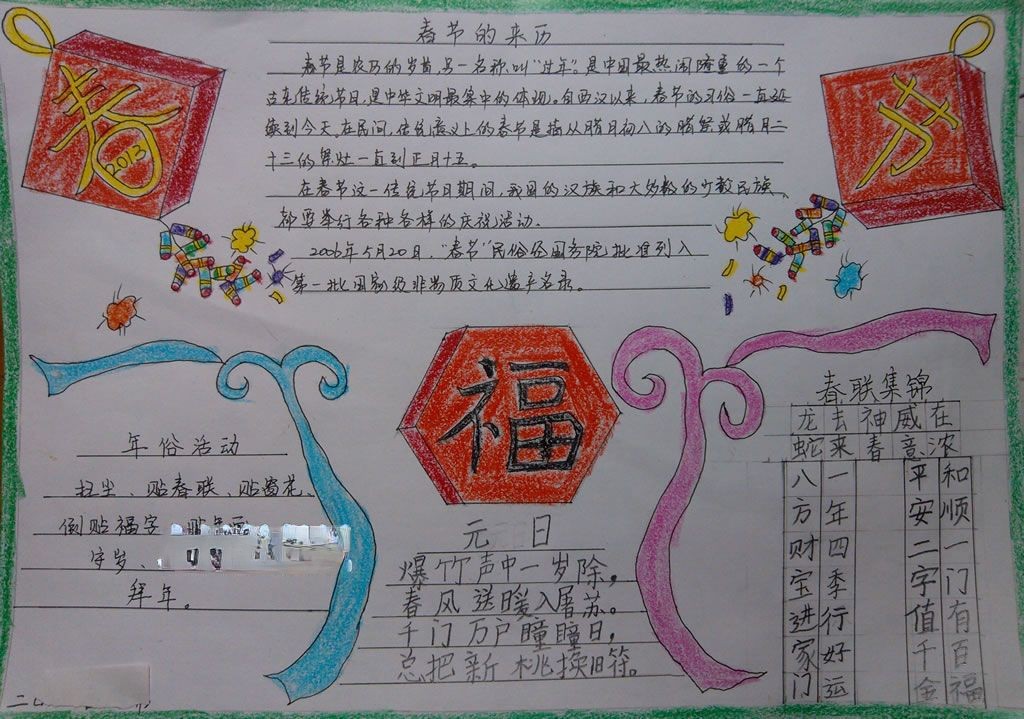 春节的来历
春
2013
节
春节是农历的岁首,另一名称叫"过年",是中国最热闹隆重的一个
古老传统节日,是中华文明最集中的体现。自西汉以来,春节的习俗一直延
续到今天,在民间,传统意义上的春节是指从腊月初八的腊祭或腊月二
十三的祭灶一直到正月十五。
在春节这一传统节日期间,我国的汉族和大多数的少数民族
都要举行各种各样的庆祝活动.
2006年5月20日,"春节"民俗经国务院批准列入
第一批国家级非物质文化遗产名录。
福
年俗活动
扫尘、贴春联、贴窗花、
倒贴福字、贴
守岁、
拜年。
元日
爆竹声中一岁除,
春风送暖入屠苏。
千门万户瞳瞳日,
总把新桃换旧符。
春联集锦
龙去神威在
蛇来春意浓
一年四季行好运
八方财宝进家门
和顺一门有百福
平安二字值千金
二